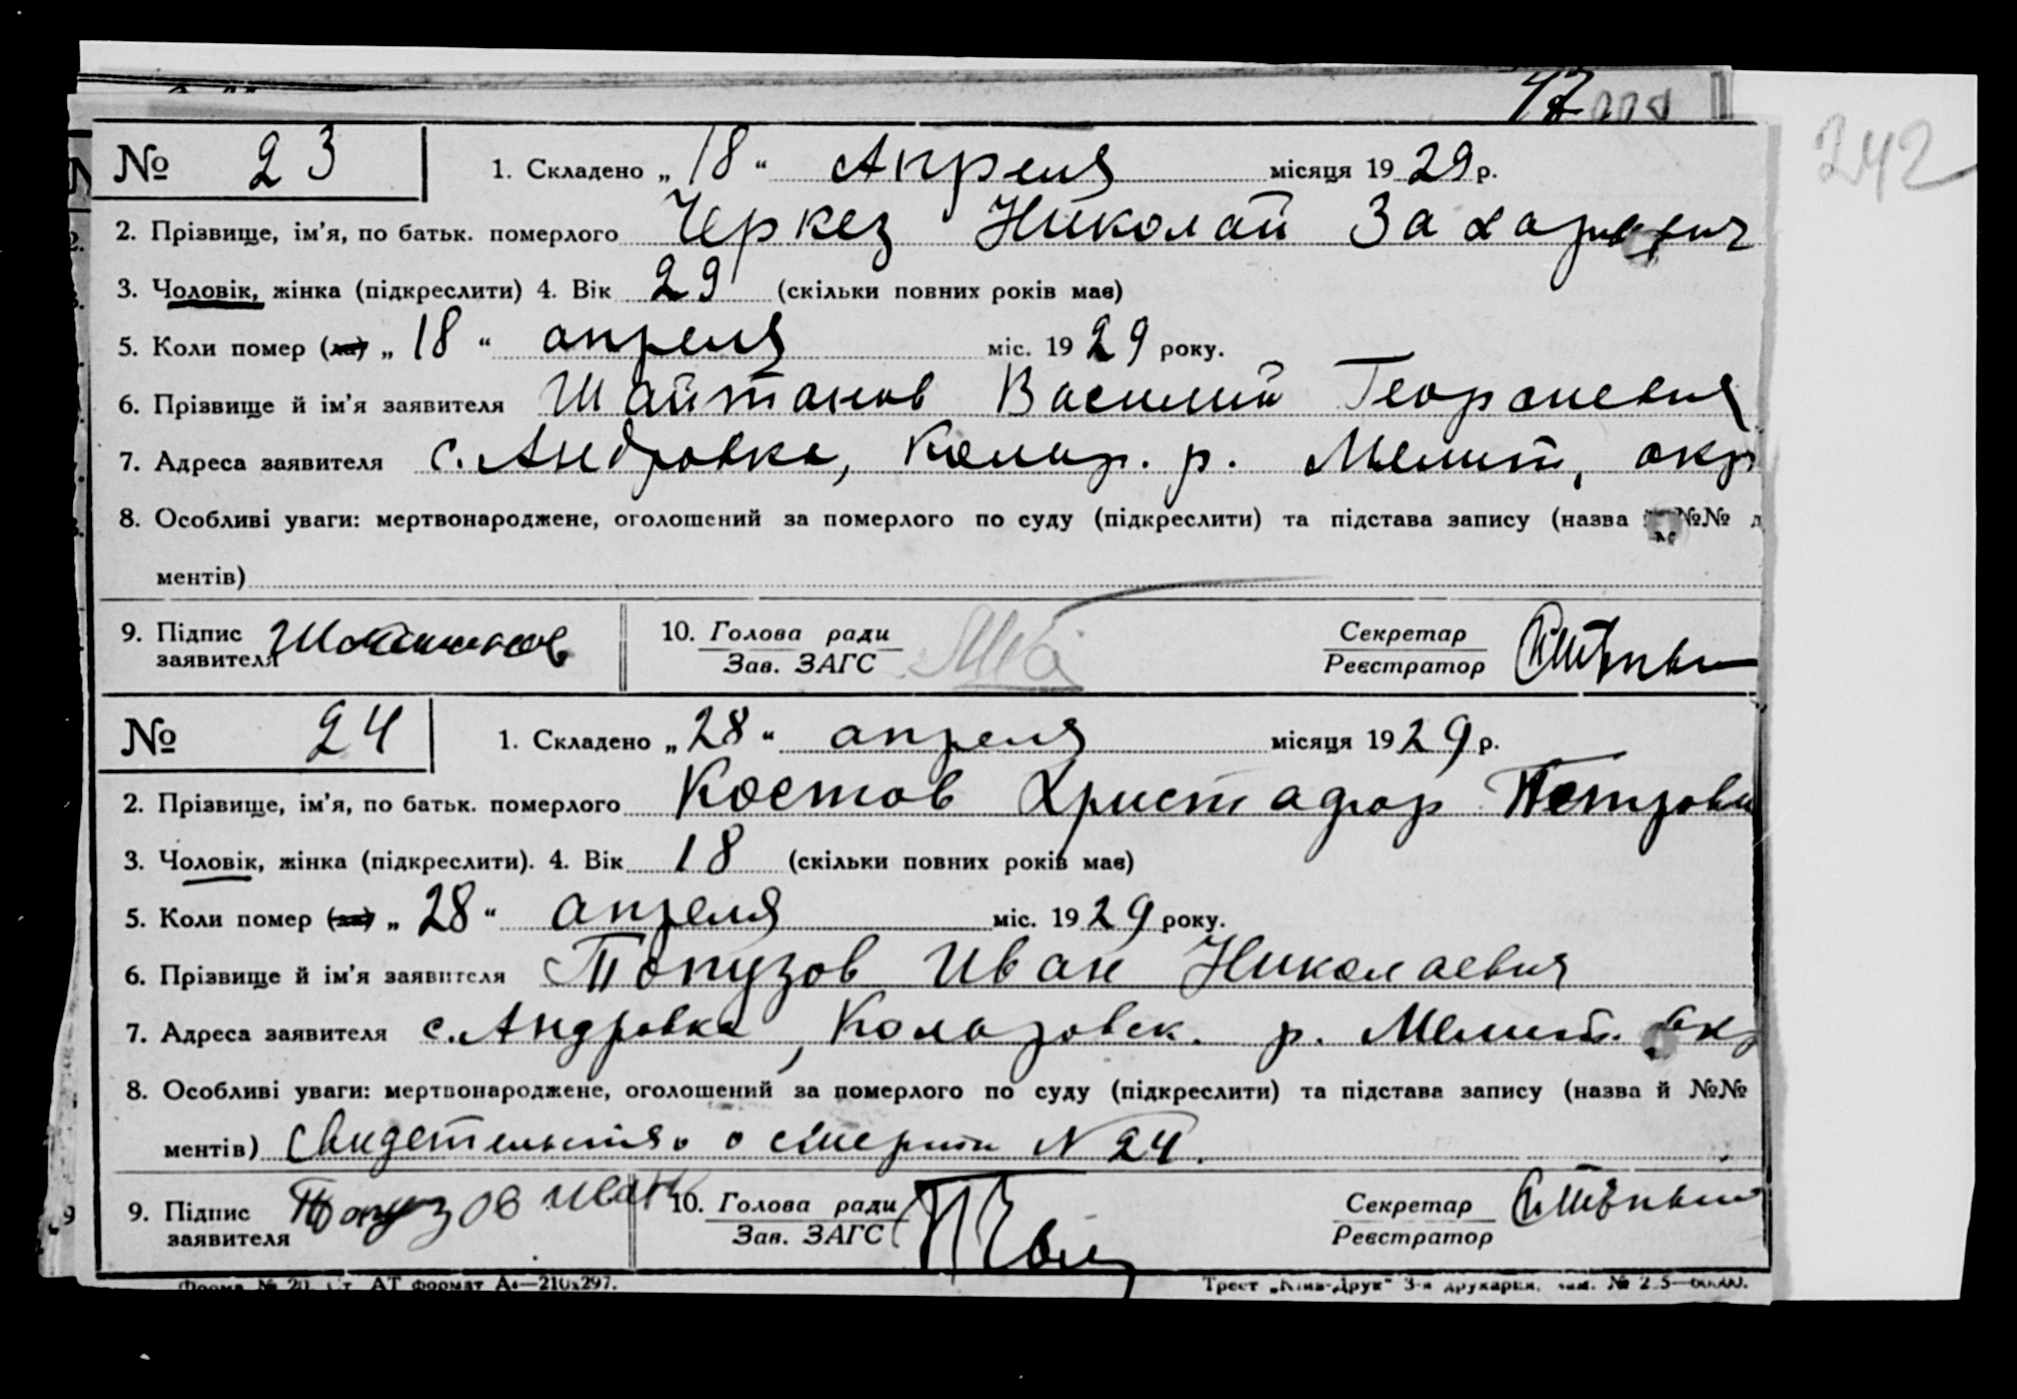 47
242
№ 23
1. Складено „18“ Апреля місяця 1929 р.
2. Прізвище, ім'я, по батьк. померлого Черкез Николай Захарович
3. Чоловік, жінка (підкреслити) 4. Вік 29 (скільки повних років має)
5. Коли помер (ла) „18“ апреля міс. 1929 року.
6. Прізвище й ім'я заявителя Шайтанов Василий Георгиевич
7. Адреса заявителя с. Андровка, Колар. р. Мелит. окр
8. Особливі уваги: мертвонароджене, оголошений за померлого по суду (підкреслити) та підстава запису (назва №№
ментів)
9. Підпис заявителя Шайтанов
10. Голова ради
Зав. ЗАГС
Секретар
Реєстратор
№ 24
1. Складено „28“ апреля місяця 1929 р.
2. Прізвище, ім'я, по батьк. померлого Костов Христафор Петрови
3. Чоловік, жінка (підкреслити). 4. Вік 18 (скільки повних років має)
5. Коли помер (ла) „28“ апреля міс. 1929 року.
6. Прізвище й ім'я заявителя Топузов Иван Николаевич
7. Адреса заявителя с. Андровка, Коларовск. р. Мелит. окр
8. Особливі уваги: мертвонароджене, оголошений за померлого по суду (підкреслити) та підстава запису (назва й №№
ментів) Свидетельство о смерти N 24.
9. Підпис заявителя Топузов Иван
10. Голова ради
Зав. ЗАГС
Секретар
Реєстратор
Форма № 20. Ст. АТ формат А4—210х297.
Трест „Київ-Друк“ 3-я друкарня.